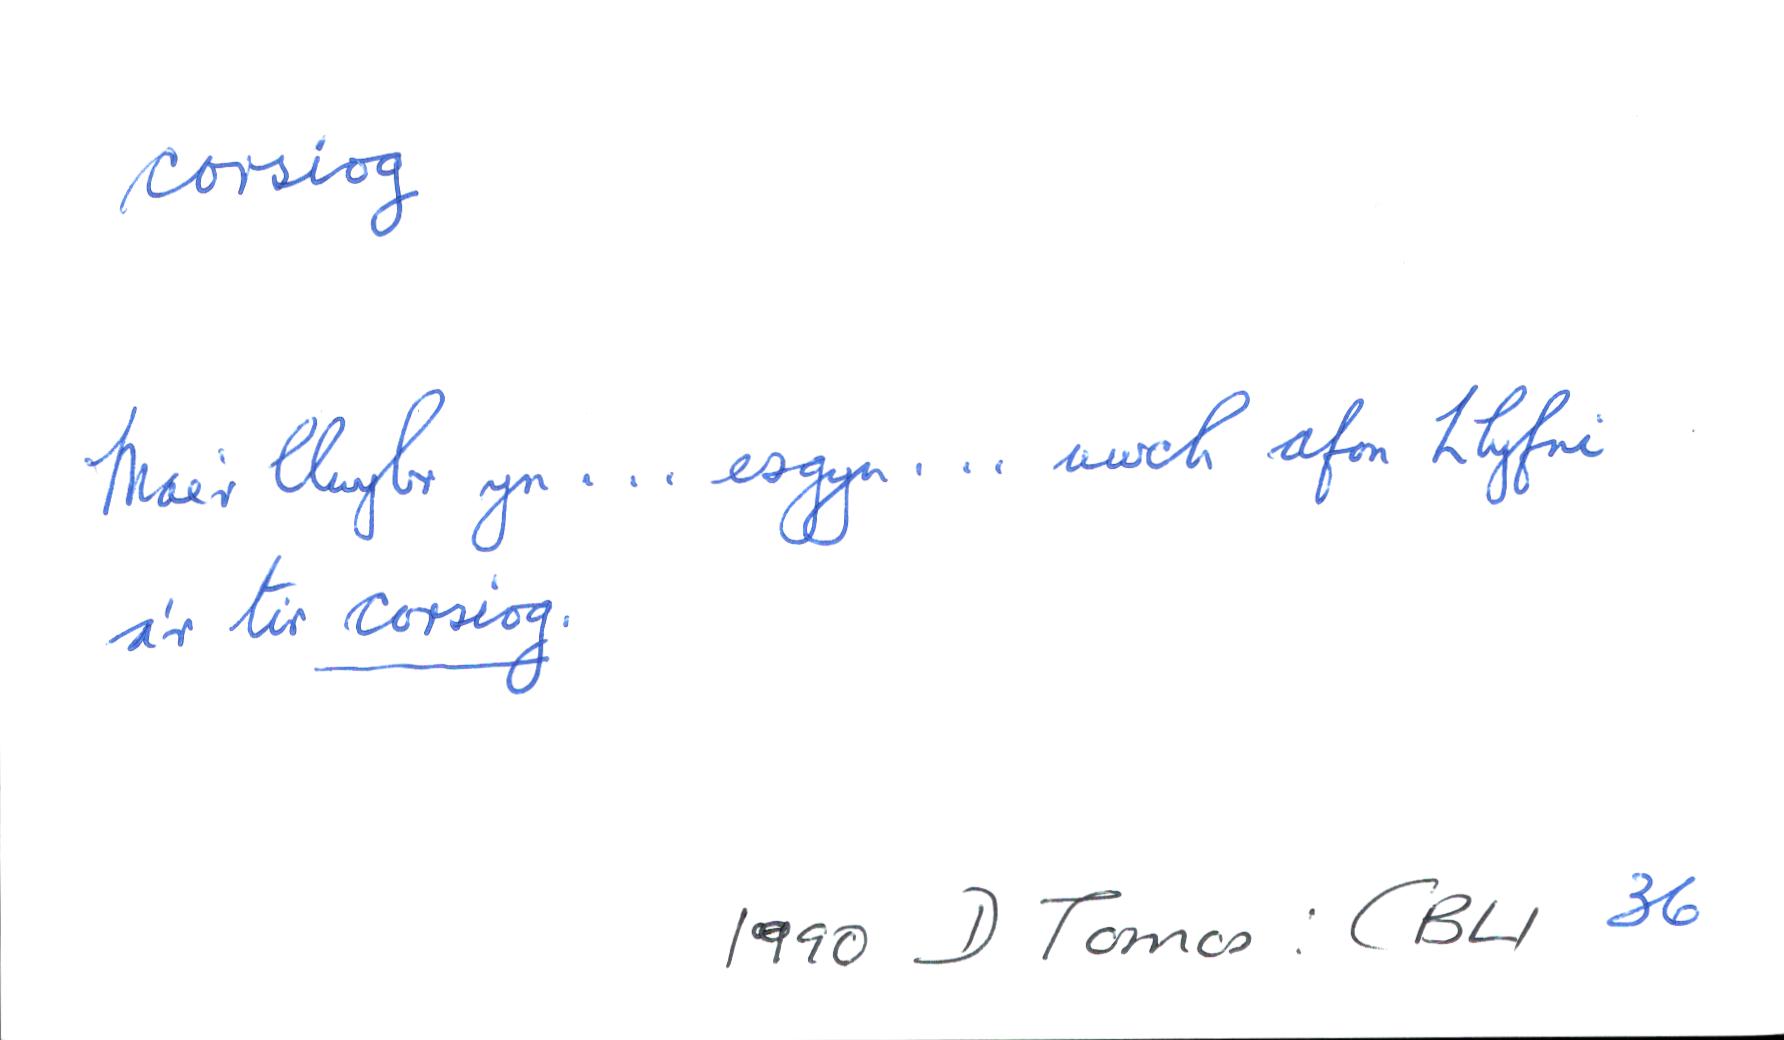 corsiog
Mae'r llwybr yn . . . esgyn . . . uwch afon Llyfni
a'r tir corsiog.
1990 D Tomos : CBLl 36